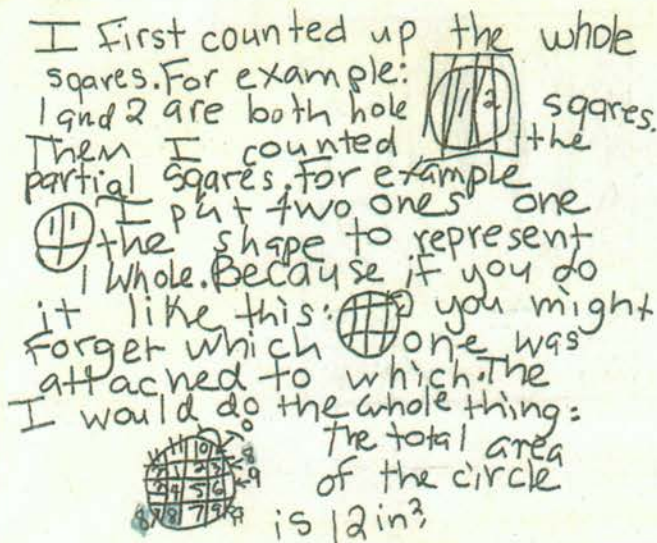 I first counted up the whole
sqares. For example:
1 and 2 are both hole 1 2 sqares.
Them I counted the
partial sqares. for example
1 1 I put two ones one
the shape to represent
1 whole. Because if you do
it like this: you might
forget which one was
attached to which. The
I would do the whole thing:
11 11 10 10
1 2 3 8
4 5 6 9
8 8 7 9 9
The total area
of the circle
is 12 in²